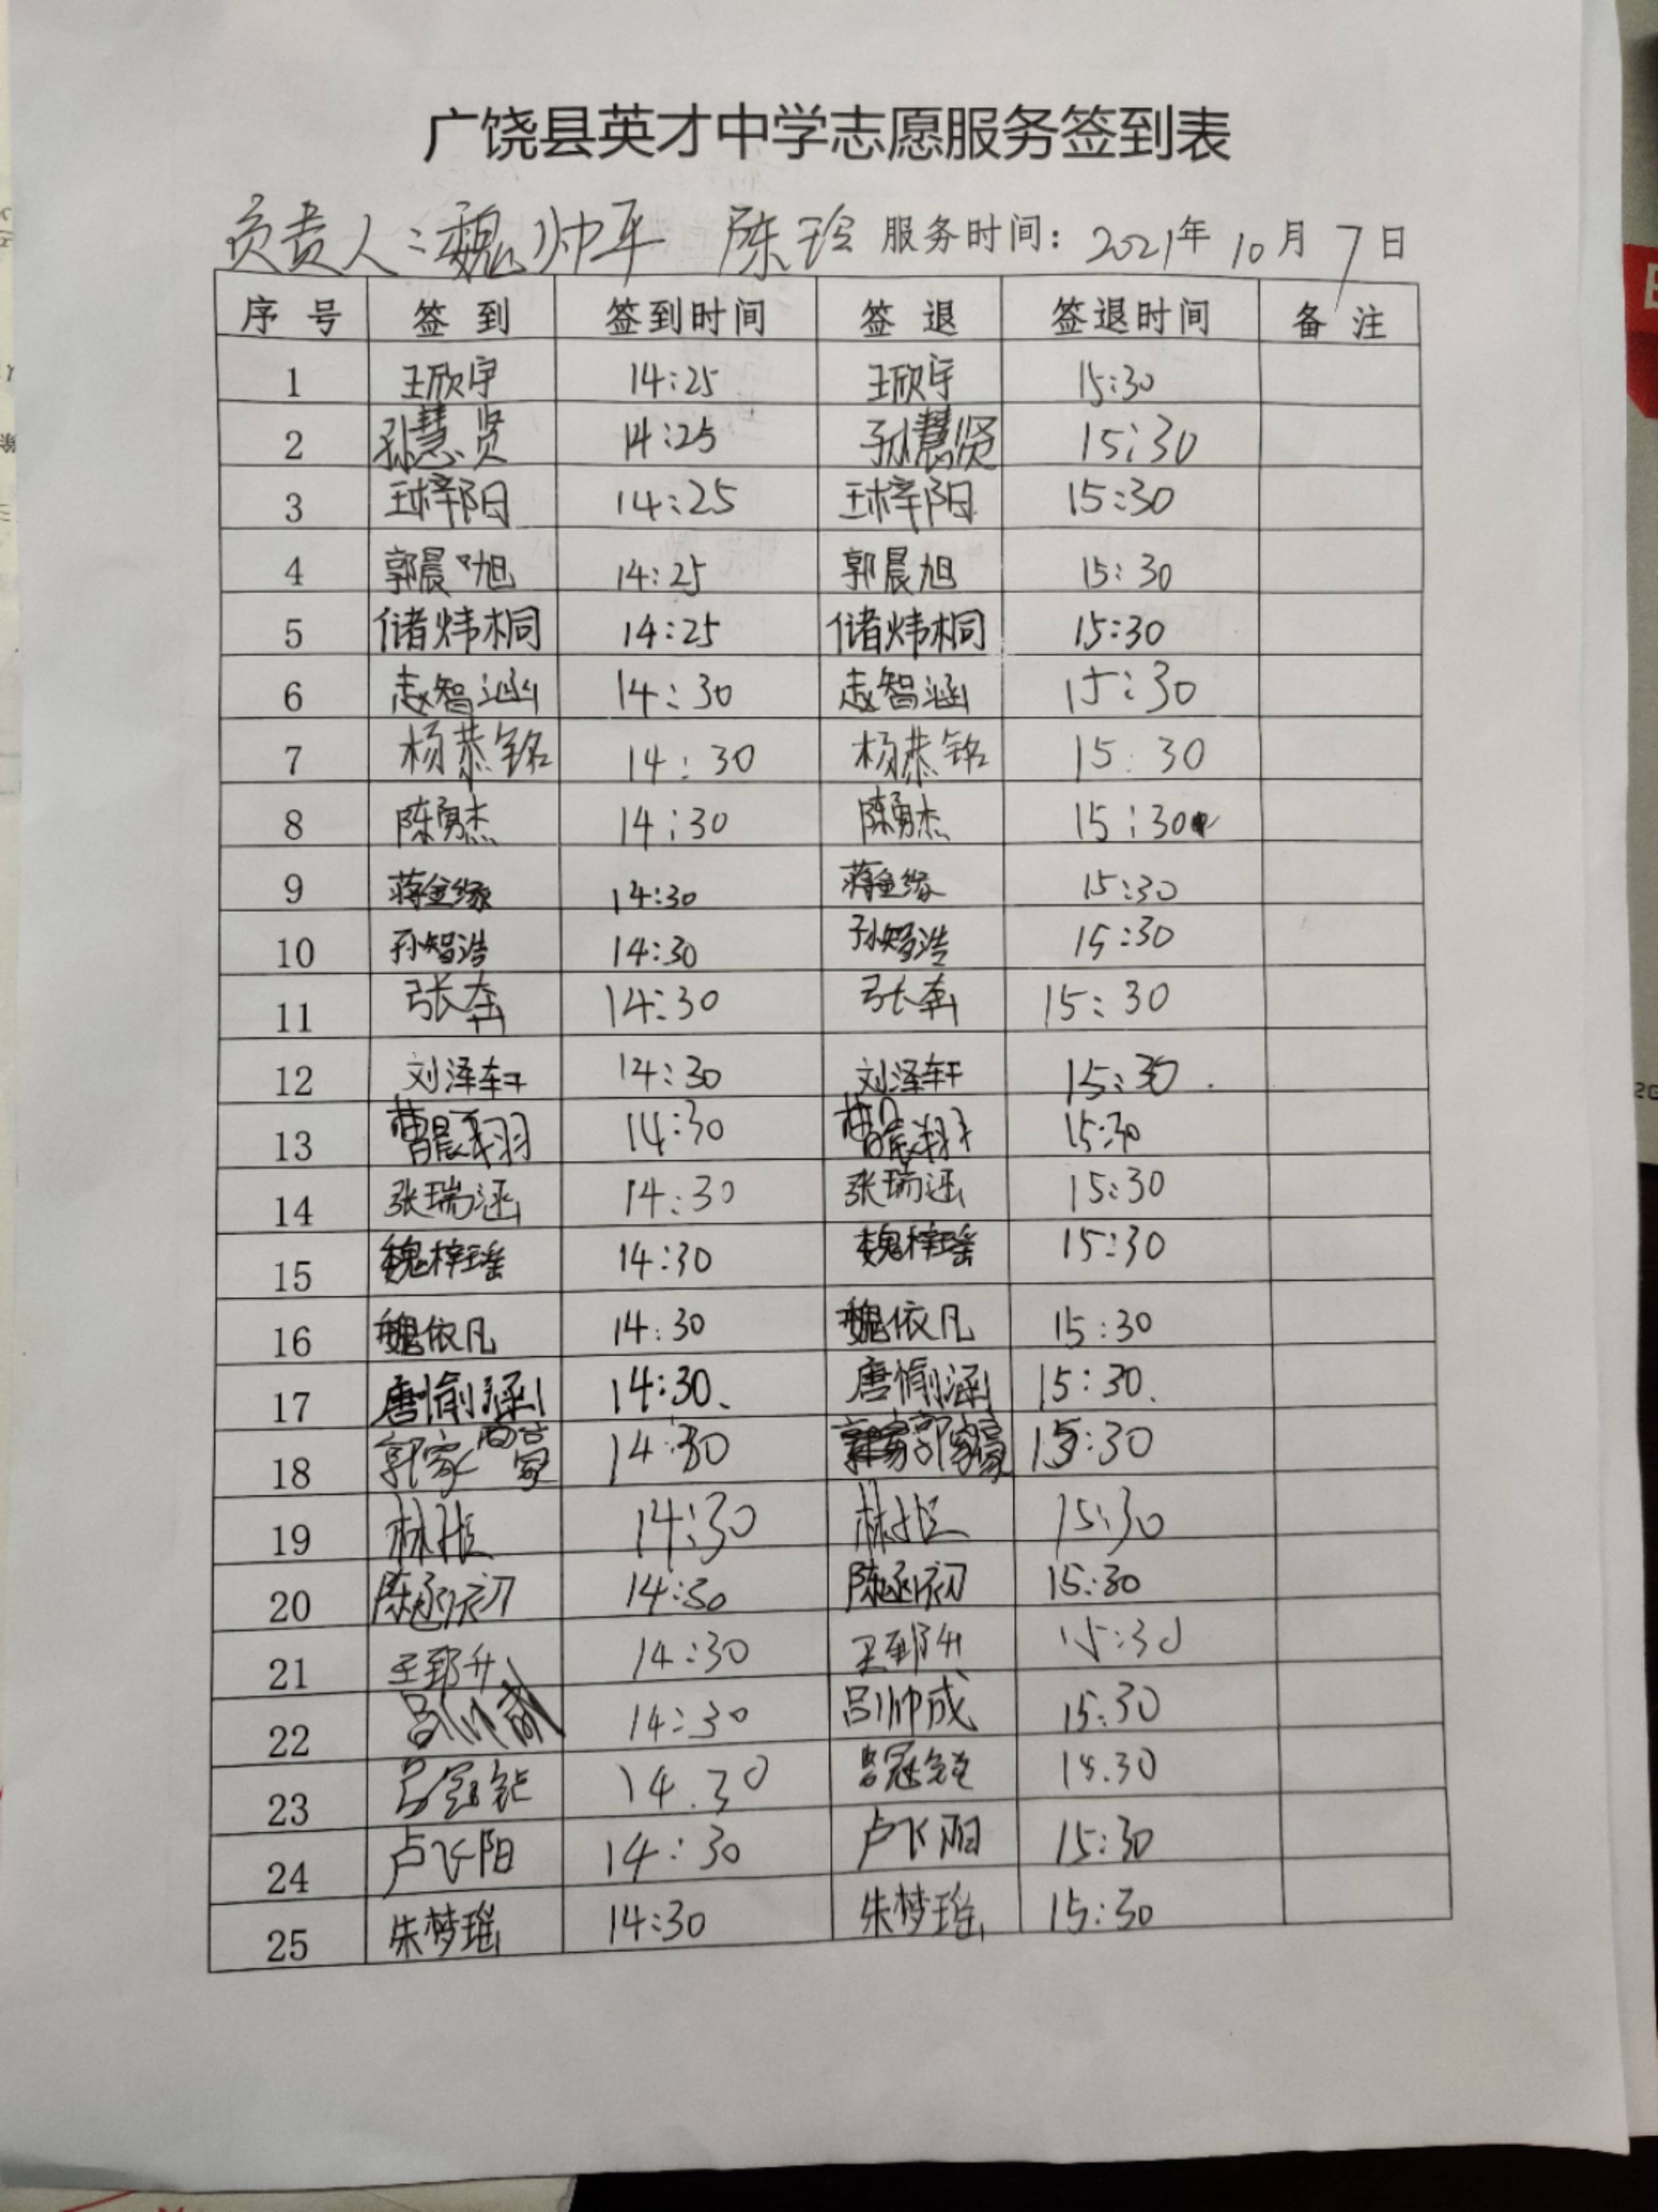 广饶县英才中学志愿服务签到表
负责人：魏帅平 陈玲 服务时间：2021年10月7日
序号 签到 签到时间 签退 签退时间 备注
1 王欣宇 14:25 王欣宇 15:30
2 孙慧贤 14:25 孙慧贤 15:30
3 王梓阳 14:25 王梓阳 15:30
4 郭晨旭 14:25 郭晨旭 15:30
5 储炜桐 14:25 储炜桐 15:30
6 智涵 14:30 智涵 15:30
7 杨恭铭 14:30 杨恭铭 15:30
8 陈勇杰 14:30 陈勇杰 15:30
9 蒋金缘 14:30 蒋金缘 15:30
10 孙智浩 14:30 孙智浩 15:30
11 张奔 14:30 张奔 15:30
12 刘泽轩 14:30 刘泽轩 15:30
13 曹晨翔 14:30 曹晨翔 15:30
14 张瑞涵 14:30 张瑞涵 15:30
15 魏梓瑶 14:30 魏梓瑶 15:30
16 魏依凡 14:30 魏依凡 15:30
17 唐愉涵 14:30 唐愉涵 15:30
18 郭家豪 14:30 郭家豪 15:30
19 林 14:30 林 15:30
20 陈函初 14:30 陈函初 15:30
21 王郅升 14:30 王郅升 15:30
22 吕帅成 14:30 吕帅成 15:30
23 吕冠 14.30 吕冠 15.30
24 卢飞阳 14:30 卢飞阳 15:30
25 朱梦瑶 14:30 朱梦瑶 15:30